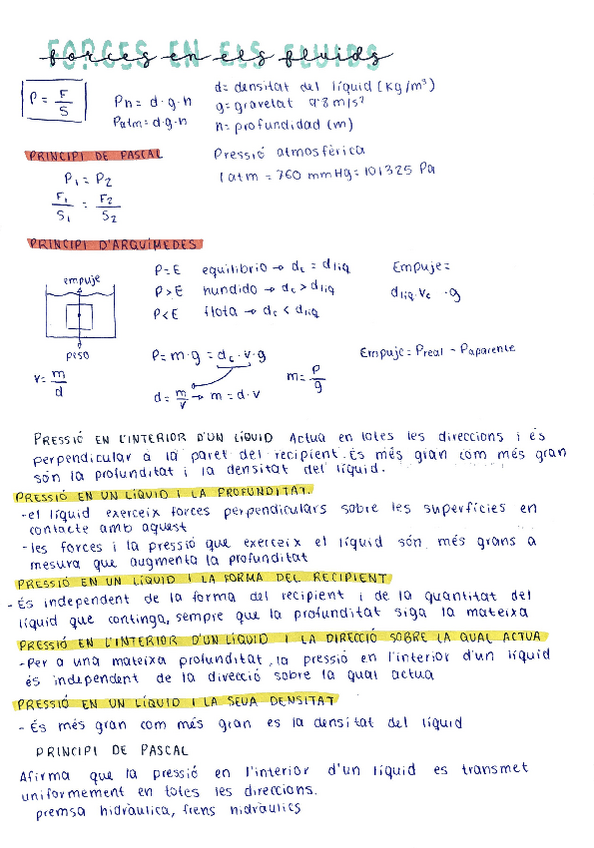 FORCES EN ELS FLUIDS
forces en els fluids
P = F/S
Ph = d·g·h
Patm = d·g·h
d = densitat del líquid (kg/m³)
g = gravetat 9.8 m/s²
h = profundidad (m)
PRINCIPI DE PASCAL
P₁ = P₂
F₁/S₁ = F₂/S₂
Pressió atmosfèrica
1 atm = 760 mmHg = 101325 Pa
PRINCIPI D'ARQUÍMEDES
empuje
peso
P=E equilibrio → dc = dliq
P>E hundido → dc > dliq
P<E flota → dc < dliq
Empuje =
dliq · Vc · g
P = m·g = dc · v · g
Empuje = Preal - Paparente
v = m/d
d = m/v → m = d·v
m = P/g
PRESSIÓ EN L'INTERIOR D'UN LÍQUID Actua en totes les direccions i és
perpendicular à la paret del recipient. És més gran com més gran
són la profunditat i la densitat del líquid.
PRESSIÓ EN UN LÍQUID I LA PROFUNDITAT.
- el líquid exerceix forces perpendiculars sobre les superfícies en
contacte amb aquest
- les forces i la pressió que exerceix el líquid són més grans a
mesura que augmenta la profunditat
PRESSIÓ EN UN LÍQUID I LA FORMA DEL RECIPIENT
- És independent de la forma del recipient i de la quantitat del
líquid que continga, sempre que la profunditat siga la mateixa
PRESSIÓ EN L'INTERIOR D'UN LÍQUID I LA DIRECCIÓ SOBRE LA QUAL ACTUA
- Per a una mateixa profunditat, la pressió en l'interior d'un líquid
és independent de la direcció sobre la qual actua
PRESSIÓ EN UN LÍQUID I LA SEUA DENSITAT
- És més gran com més gran es la densitat del líquid
PRINCIPI DE PASCAL
Afirma que la pressió en l'interior d'un líquid es transmet
uniformement en totes les direccions.
premsa hidràulica, frens hidràulics